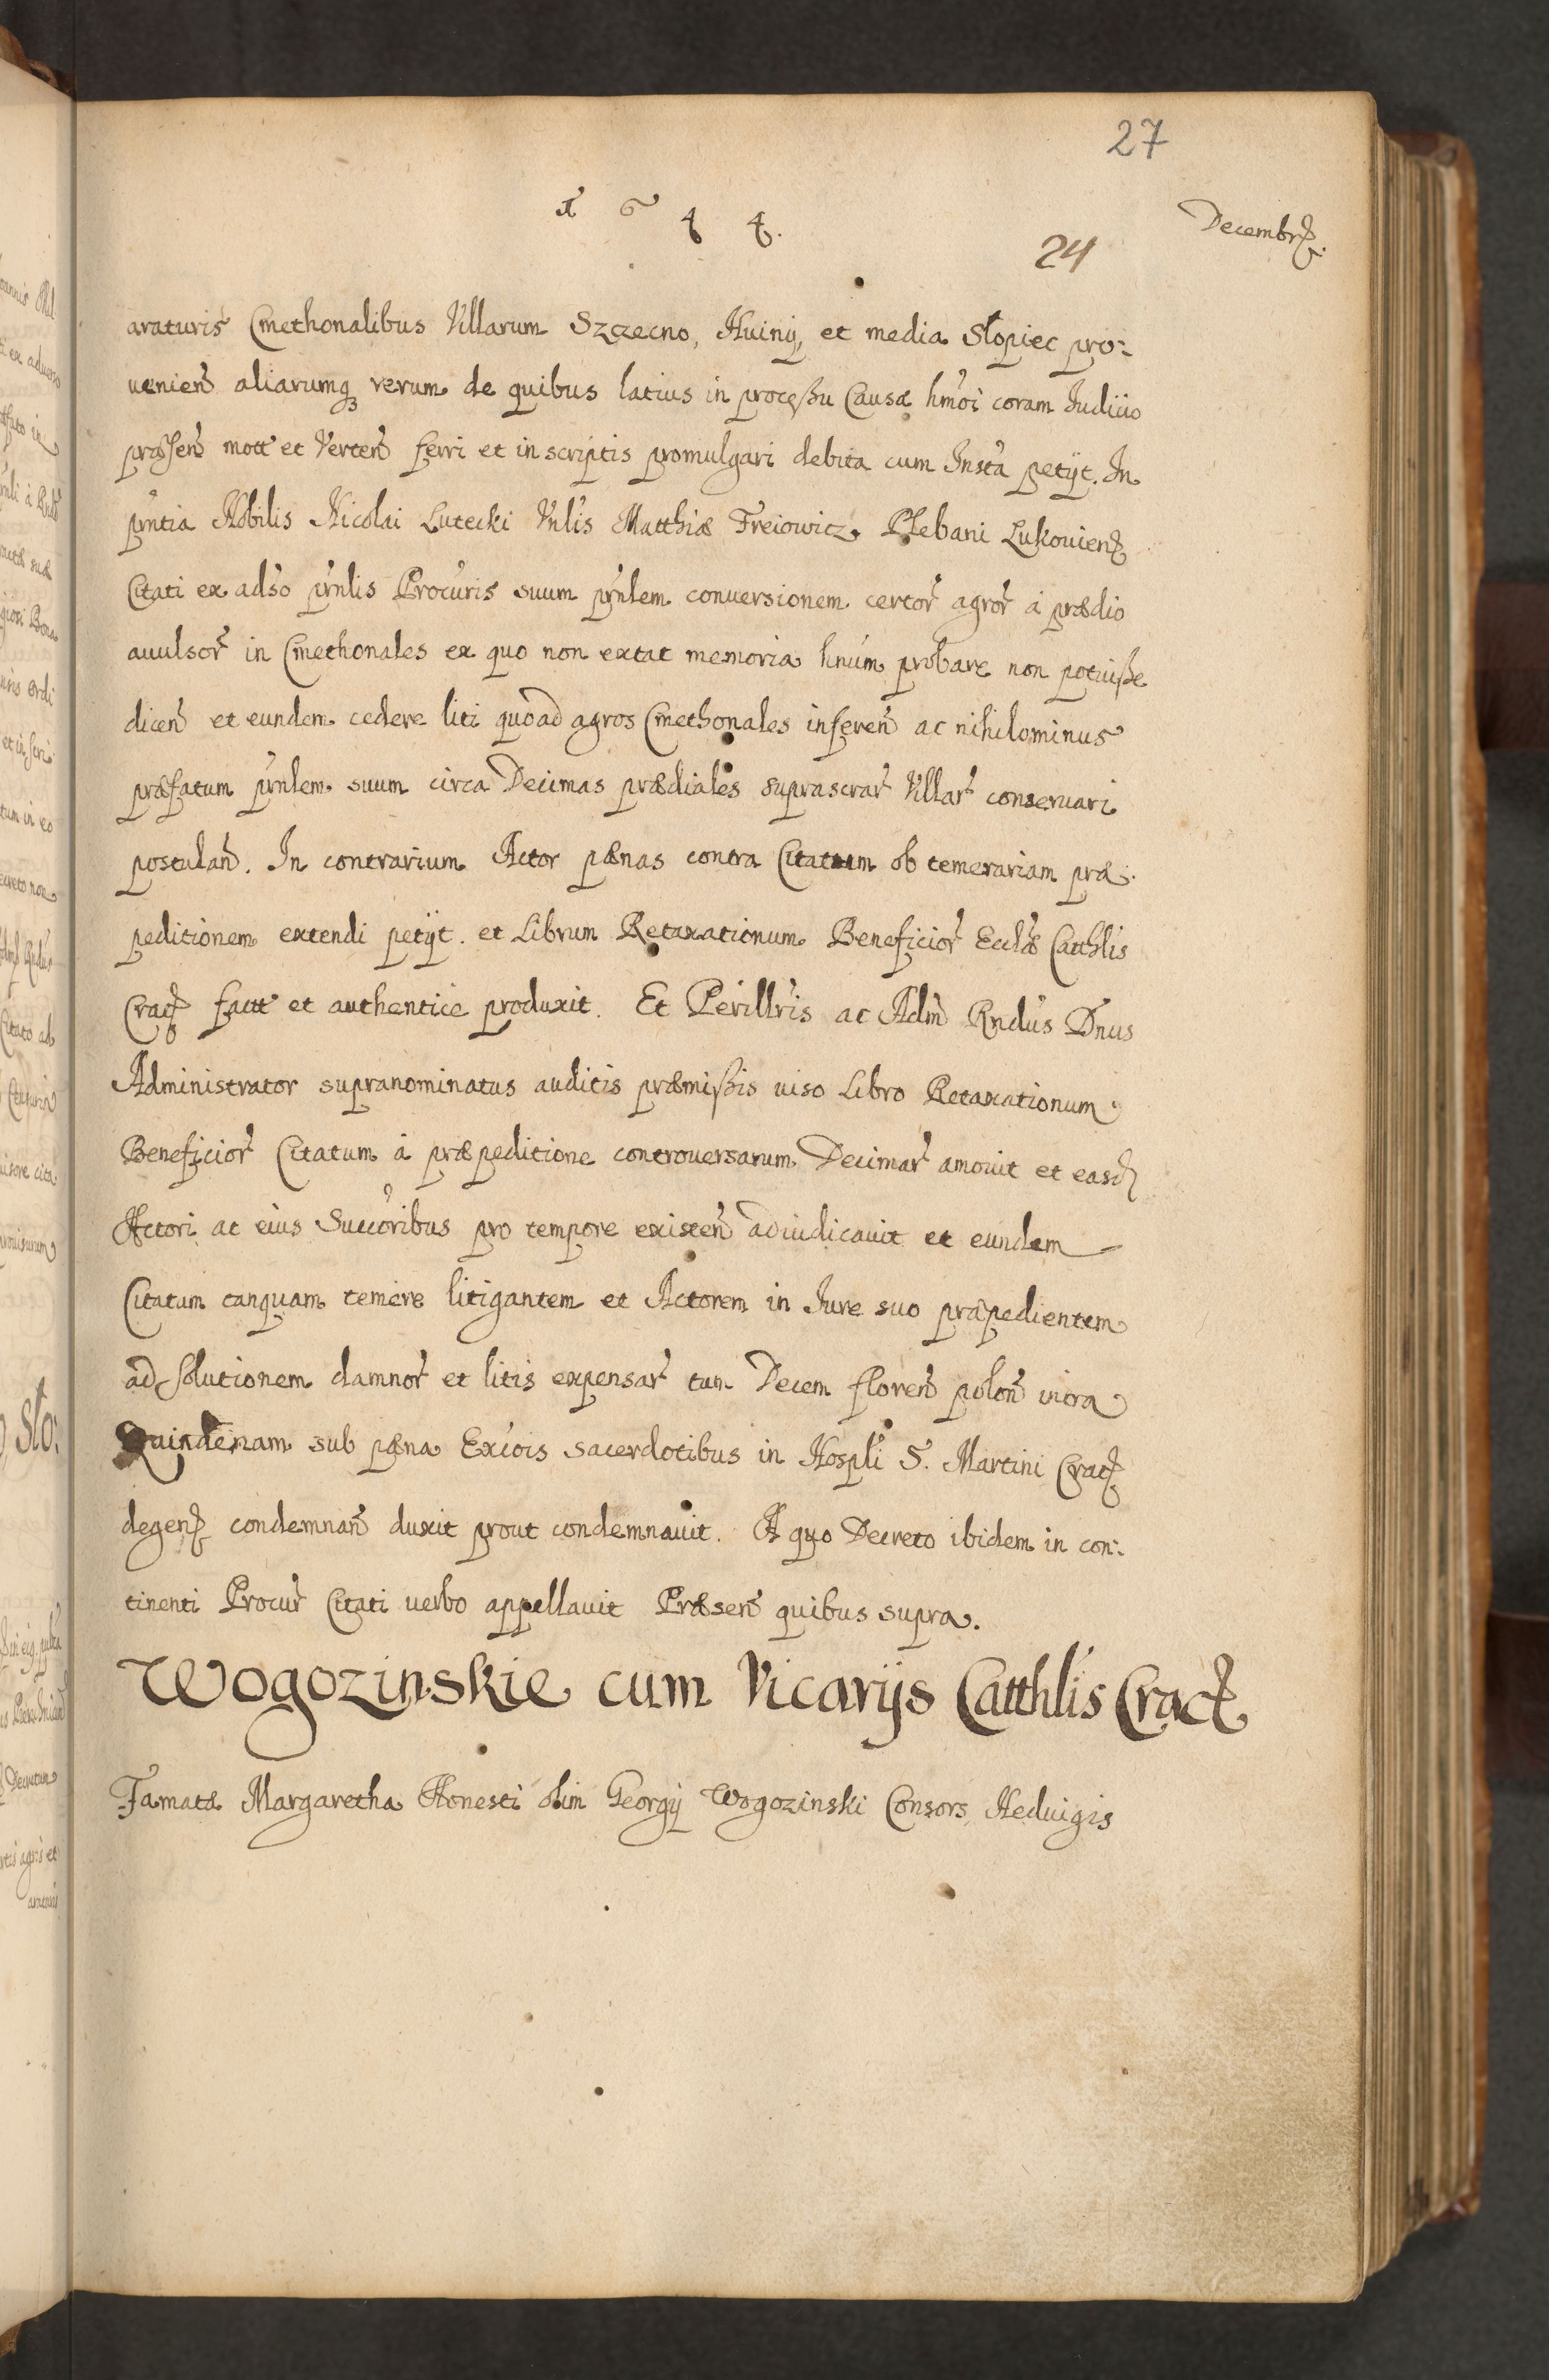 27
1 6 4 4.
Decembr̃.
24
araturis Cmethonalibus Villarum Szczecno, Huiny, et media Słopiec pro:
uenien̄ aliarumq̨ rerum de quibus latius in processu Causæ hm̄oi coram Iudicio
præsen̄ mott̄ et Verten̄ ferri et in scriptis promulgari debita cum Insta petijt. In
pn̄tia Nobilis Nicolai Lutecki Vn̄lis Matthiæ Freiowicz Plebani Lukouien̄
Citati ex adso prīnlis Procūris suum prīnlem conuersionem certor̄ agror̄ à prædio
auulsor̄ in Cmethonales ex quo non extat memoria hnūm probare non potuisse
dicen̄ et eundem cedere liti quoad agros Cmethonales inferen̄ ac nihilominus
præfatum prīnlem suum circa Decimas prædiales suprascrar̄ Villar̄ conseruari
postulan̄. In contrarium Actor pænas contra Citatum ob temerariam præ:
peditionem extendi petijt. et Librum Retaxationum Beneficior̄ Eccl̄æ Catthl̄is
Crac̄ factt̄ et authentice produxit. Et Perill̄ris ac Adm̄ Rn̄dus Dn̄us
Administrator supranominatus auditis præmissis uiso Libro Retaxationum
Beneficior̄ Citatum à præpeditione controuersarum Decimar̄ amouit et easd̄
Actori ac eius Succōribus pro tempore existen̄ adiudicauit et eundem
Citatum tanquam temere litigantem et Actorem in Iure suo præpedientem
ad solutionem damnor̄ et litis expensar̄ tum Decem floren̄ polon̄ intra
Quindenam sub pæna Excōis sacerdotibus in Hospl̄i S. Martini Crac̄
degen̄ condemnan̄ duxit prout condemnauit. A quo Decreto ibidem in con:
tinenti Procur̄ Citati uerbo appellauit Præsen̄ quibus supra.
Wogozinskie cum Vicarijs Catthl̄is Crac̄
Famatæ Margaretha Honesti olim Georgij Wogozinski Consors, Heduigis